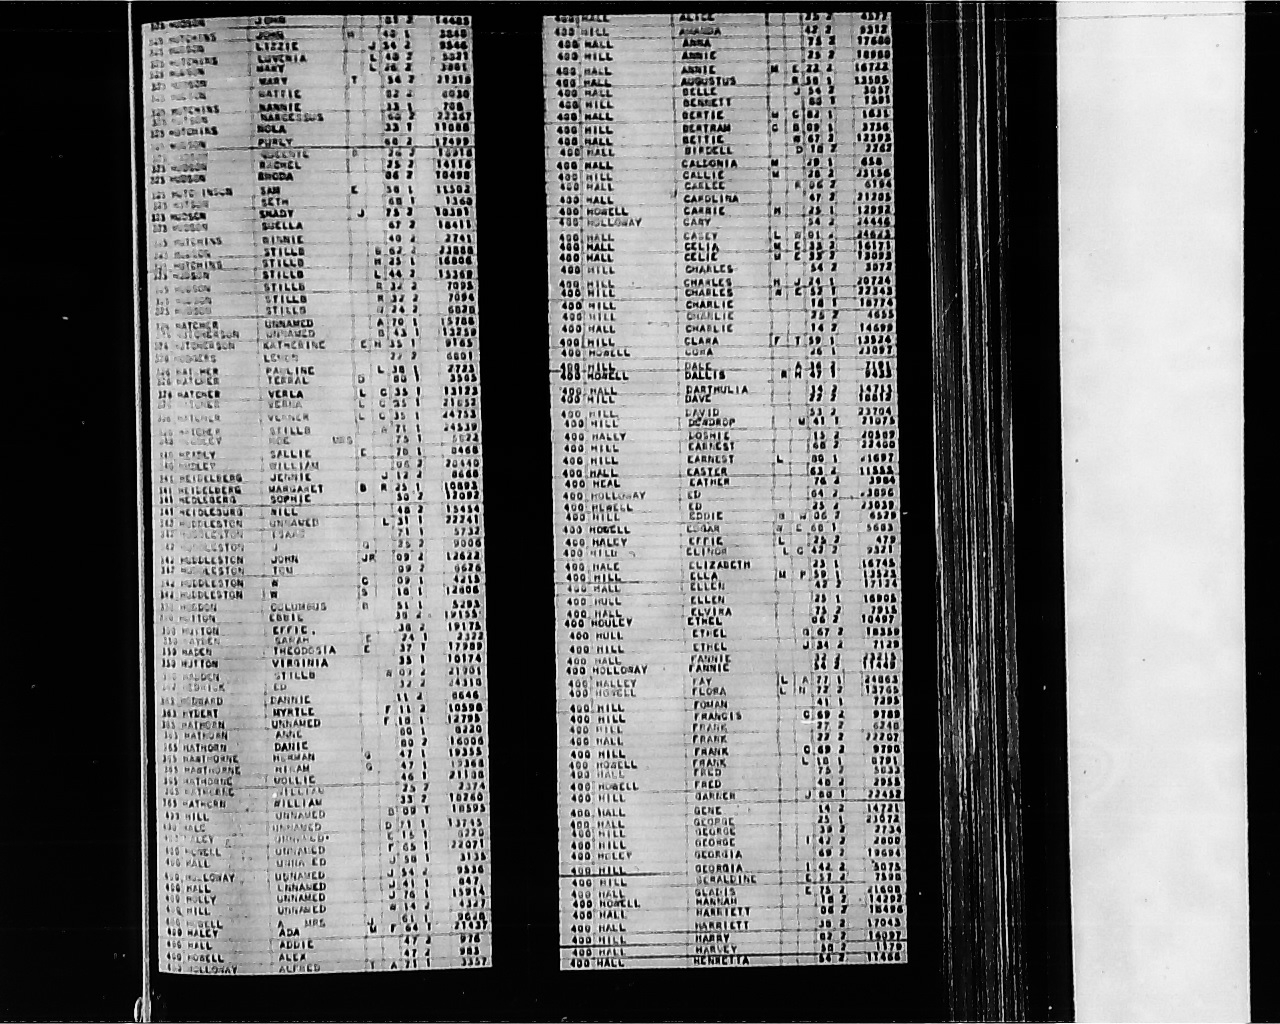 325 HUDSON JOHN 01 2 14485
325 HUTCHINS JOHN W 40 1 3840
325 HUDSON LIZZIE J 54 2 9546
325 HUTCHINS LUVENIA L 40 2 5021
325 HUDSON MARY L 26 2
325 HUDSON MARY T 54 2 21319
325 HUDSON MATTIE 02 2 6030
325 HUTCHINS NANNIE 33 1 708
325 HUDSON NARCESSUS 60 2 22367
325 HUTCHINS NOLA 33 1 11088
325 HUDSON PURLY 60 2 17499
325 HUDSON QUEENIE
325 HUDSON RACHEL 25 2 14116
325 HUDSON RHODA 06 2 10498
325 HUTCHINSON SAM E 58 1 11502
325 HUTSON SETH 60 1 1360
325 HUDSON SHADY J 75 2 10391
325 HUDSON SUELLA 67 2 18411
325 HUTCHINS WINNIE 40 2 2741
325 HUDSON STILLB 62 2 23888
325 HUTCHINS STILLB 25 1 16806
325 HUDSON STILLB L 44 2 15369
325 HUDSON STILLB R 32 2 7095
325 HUDSON STILLB R 32 2 7094
325 HUDSON STILLB W 24 2 6020
326 HATCHER UNNAMED A 70 1 15788
326 HUTCHERSON UNNAMED B 43 1 13259
326 HUTCHERSON KATHERINE E H 35 1 9165
326 HODGERS LEMON 22 2 6601
326 HATCHER PAULINE L 38 1 2723
326 HATCHER TERRAL D 80 1 3565
326 HATCHER VERLA L C 35 1 13123
326 HATCHER VERNA L C 35 1 21052
326 HATCHER VERNER L C 35 1 24753
326 HATCHER STILLB A 71 1 24539
340 HEADLEY ROE MRS 75 1 5022
340 HEADLY SALLIE E 70 1 8468
340 HUDLEY WILLIAM 06 2 20440
341 HEIDELBERG JENNIE J 12 2 8668
341 HEIDELBERG MARGARET B R 25 1 10893
341 HEDLEBERG SOPHIE 50 2 12092
341 HEIDLEBURG WILL 48 2 15454
342 HUDDLESTON UNNAMED L 31 1 22241
342 HUDDLESTON ISAAC 71 1 5732
342 HUDDLESTON J O 25 2 9006
342 HUDDLESTON JOHN JR 09 2 12622
342 HUDDLESTON TOM 09 2 6626
342 HUDDLESTON W C 09 1 4215
342 HUDDLESTON W S 18 1 12806
350 HUDDON COLUMBUS B 51 1 5293
350 HUTTON EBBIE 38 2 19155
350 HUTTON EFFIE. 38 2 19175
350 HAYDEN SARAH E 24 1 2322
350 HADEN THEODOSIA E 37 1 17989
350 HUTTON VIRGINIA 35 1 10174
350 HADDEN STILLB W 07 2 21901
362 HEDRICK ED 32 2 24310
363 HEDWARD DANNIE 11 2 6646
363 HYDERT MYRTLE F 11 2 10598
365 HATHORN UNNAMED F 18 1 12795
365 HATHORN ANNE 80 1 8220
365 HATHORN DANIE 80 2 16006
365 HAWTHORNE HERMAN G 47 1 19355
365 HAWTHORNE HIRAM G 47 1 19366
365 HATHORNE MOLLIE 46 1 21108
365 HATHORNE WILLIAM 25 2 2374
365 HATHORN WILLIAM 33 2 10260
400 HILL UNNAMED B 09 1 18595
400 HALE UNNAMED D 71 1 13745
400 HALEY UNNAMED E 15 1 8220
400 HOWELL UNNAMED F 65 1 22071
400 HALL UNNAMED J 58 1 3135
400 HOLLOWAY UNNAMED J 54 2 9536
400 HALL UNNAMED J 41 1 847
400 HOLLY UNNAMED J 76 1 15914
400 HILL UNNAMED W 14 2 4327
400 HOWELL MRS J 61 1 9648
400 HALEY ADA M F 64 1 21437
400 HALL ADDIE 47 2 976
400 HOWELL ALEX 47 2 983
400 HOLLOWAY ALFRED T A 71 1 3357
400 HALL ALICE 25 2 4377
400 HILL AMANDA 42 2 9312
400 HALL ANNA 75 2 17600
400 HILL ANNIE 25 2 18960
400 HALL ANNIE M E 22 2 16722
400 HALL AUGUSTUS R 58 1 13505
400 HALL BELLE J 54 2 3057
400 HILL BENNETT 80 1 1501
400 HALL BERTIE M C 82 1 1631
400 HILL BERTRAM C B 09 1 3756
400 HALL BETTIE W 67 2 12393
400 HALL BIRDELL D 18 2 2262
400 HALL CALDONIA M 29 1 658
400 HILL CALLIE M 28 2 23156
400 HALL CARLEE R 06 2 6194
400 HALL CAROLINA 47 2 21205
400 HOWELL CARRIE H 25 1 12992
400 HOLLOWAY CARY 54 2 24446
400 HALL CASEY L W 01 2 24623
400 HALL CELIA M E 33 2 16171
400 HALL CELIE M E 33 2 13093
400 HILL CHARLES 54 2 3072
400 HILL CHARLES H J 24 1 20724
400 HILL CHARLES W E 57 1 22343
400 HILL CHARLIE 18 1 18774
400 HILL CHARLIE 25 2 4655
400 HALL CHARLIE 14 2 14699
400 HILL CLARA F T 59 1 13524
400 HOWELL CORA 26 1 23097
400 HILL DALE A 38 1 2181
400 HOWELL DALLIS R H 47 1
400 HALL DARTHULIA 14 2 14711
400 HILL DAVE 22 2 18612
400 HILL DAVID 53 2 23704
400 HILL DEWDROP M 41 1 21075
400 HALEY DOSHIE 15 2 20589
400 HILL EARNEST 68 2 22400
400 HILL EARNEST L 80 1 21697
400 HALL EASTER 63 2 11555
400 HEAL EATHER 76 2 3984
400 HOLLOWAY ED 64 2 3896
400 HEWELL ED 25 2 23039
400 HILL EDDIE B W 06 2 6529
400 HOWELL EDGAR W E 60 1 5683
400 HALEY EFFIE L 25 2 479
400 HILD ELINOR L C 42 2 9321
400 HALE ELIZABETH 23 1 16745
400 HILL ELLA M F 59 1 13523
400 HALL ELLEN 42 2 17137
400 HULL ELLEN 25 1 16905
400 HALL ELVIRA 75 2 7915
400 HOULEY ETHEL 06 2 10497
400 HULL ETHEL O 67 2 18359
400 HILL ETHEL J 34 2 7129
400 HALL FANNIE 32 2 23215
400 HOLLOWAY FANNIE 54 2 11403
400 HALLEY FAY L A 77 1 24863
400 HOWELL FLORA L N 72 2 13765
400 HILL FOMAN 41 1 7295
400 HILL FRANCIS C 69 2 9789
400 HILL FRANK 27 2 6240
400 HALL FRANK 27 2 22207
400 HILL FRANK C 69 2 9790
400 HOWELL FRANK L 18 1 8791
400 HALL FRED 75 2 5033
400 HOWELL FRED 40 2 2955
400 HILL GARNER J 80 1 22452
400 HALL GENE 14 2 14721
400 HALL GEORGE 25 1 23072
400 HILL GEORGE 39 2 2734
400 HILL GEORGE I 42 2 2800
400 HOLEY GEORGIA 69 2 19694
400 HILL GEORGIA I 42 2 5073
400 HILL GERALDINE E 57 2 7595
400 HALL GLADIS E 75 2 21608
400 HOWELL HANNAH 18 2 14292
400 HALL HARRIETT 06 2 18496
400 HALL HARRIETT 38 2 17043
400 HILL HARRY 82 1 16097
400 HALL HARVEY 38 2 1179
400 HALL HENRETTA 54 2 11466